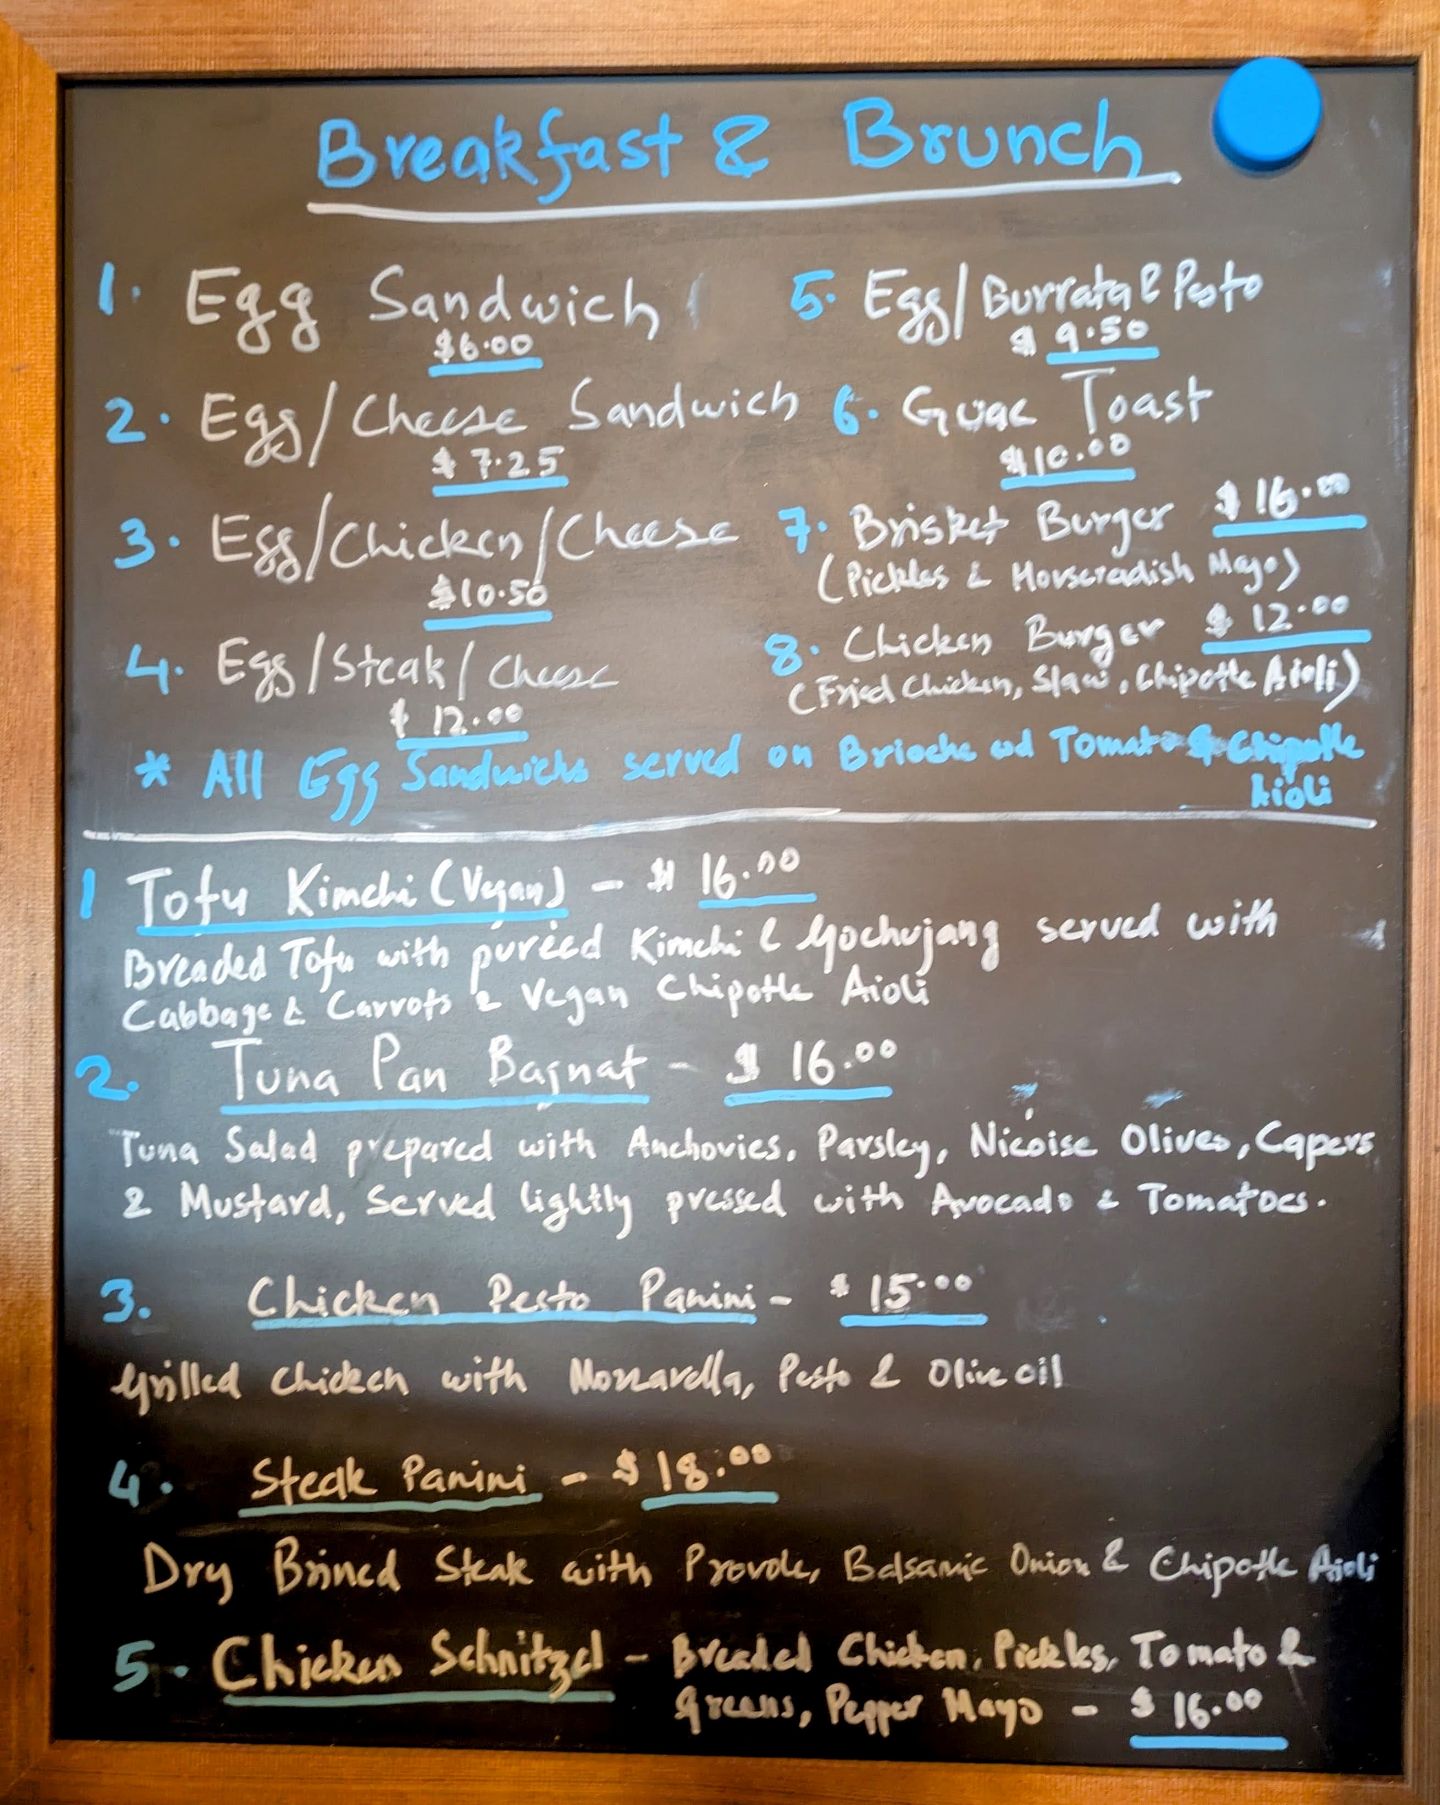 Breakfast & Brunch
1. Egg Sandwich
$6.00
2. Egg/Cheese Sandwich
$7.25
3. Egg/Chicken/Cheese
$10.50
4. Egg/Steak/Cheese
$12.00
5. Egg/Burrata & Pesto
$9.50
6. Guac Toast
$10.00
7. Brisket Burger $16.00
(Pickles & Horseradish Mayo)
8. Chicken Burger $12.00
(Fried Chicken, Slaw, Chipotle Aioli)
* All Egg Sandwichs served on Brioche and Tomato & Chipotle
Aioli
1 Tofu Kimchi (Vegan) - $16.00
Breaded Tofu with puréed Kimchi & Gochujang served with
Cabbage & Carrots & Vegan Chipotle Aioli
2. Tuna Pan Bagnat - $16.00
Tuna Salad prepared with Anchovies, Parsley, Nicoise Olives, Capers
& Mustard, Served lightly pressed with Avocado & Tomatoes.
3. Chicken Pesto Panini - $15.00
Grilled Chicken with Mozzarella, Pesto & Olive oil
4. Steak Panini - $18.00
Dry Brined Steak with Provole, Balsamic Onion & Chipotle Aioli
5. Chicken Schnitzel - Breaded Chicken, Pickles, Tomato &
Greens, Pepper Mayo - $16.00